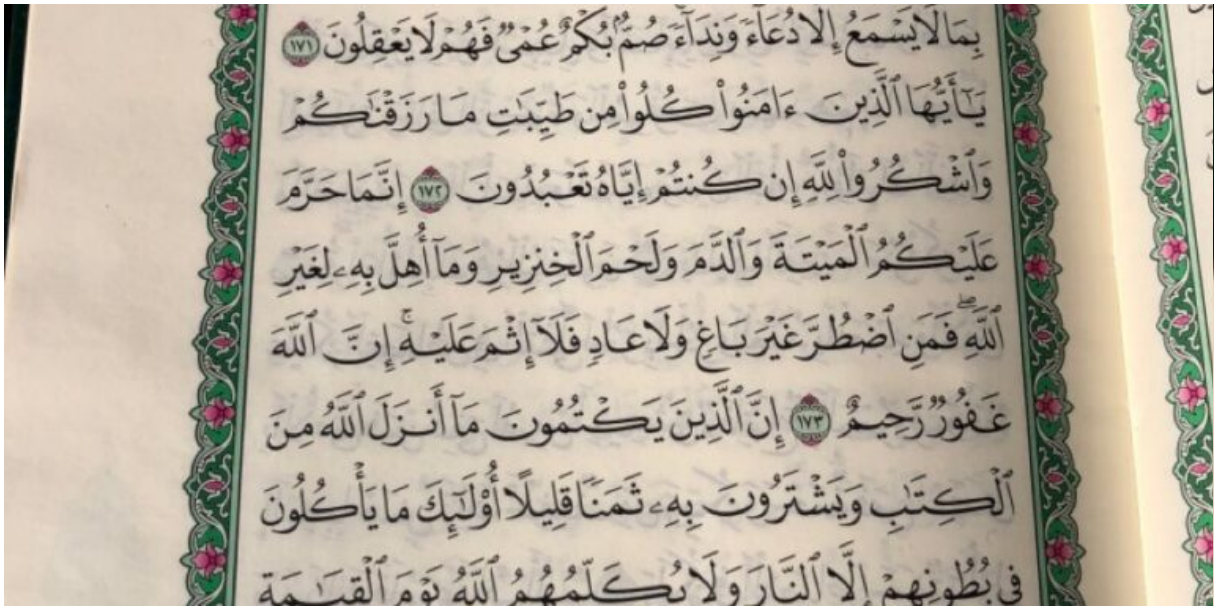 بِمَا لَا يَسْمَعُ إِلَّا دُعَآءً وَنِدَآءً صُمٌّۢ بُكْمٌ عُمْىٌ فَهُمْ لَا يَعْقِلُونَ ١٧١
يَـٰٓأَيُّهَا ٱلَّذِينَ ءَامَنُوا۟ كُلُوا۟ مِن طَيِّبَـٰتِ مَا رَزَقْنَـٰكُمْ
وَٱشْكُرُوا۟ لِلَّهِ إِن كُنتُمْ إِيَّاهُ تَعْبُدُونَ ١٧٢ إِنَّمَا حَرَّمَ
عَلَيْكُمُ ٱلْمَيْتَةَ وَٱلدَّمَ وَلَحْمَ ٱلْخِنزِيرِ وَمَآ أُهِلَّ بِهِۦ لِغَيْرِ
ٱللَّهِ ۖ فَمَنِ ٱضْطُرَّ غَيْرَ بَاغٍ وَلَا عَادٍ فَلَآ إِثْمَ عَلَيْهِ ۚ إِنَّ ٱللَّهَ
غَفُورٌ رَّحِيمٌ ١٧٣ إِنَّ ٱلَّذِينَ يَكْتُمُونَ مَآ أَنزَلَ ٱللَّهُ مِنَ
ٱلْكِتَـٰبِ وَيَشْتَرُونَ بِهِۦ ثَمَنًا قَلِيلًا أُو۟لَـٰٓئِكَ مَا يَأْكُلُونَ
فِى بُطُونِهِمْ إِلَّا ٱلنَّارَ وَلَا يُكَلِّمُهُمُ ٱللَّهُ يَوْمَ ٱلْقِيَـٰمَةِ